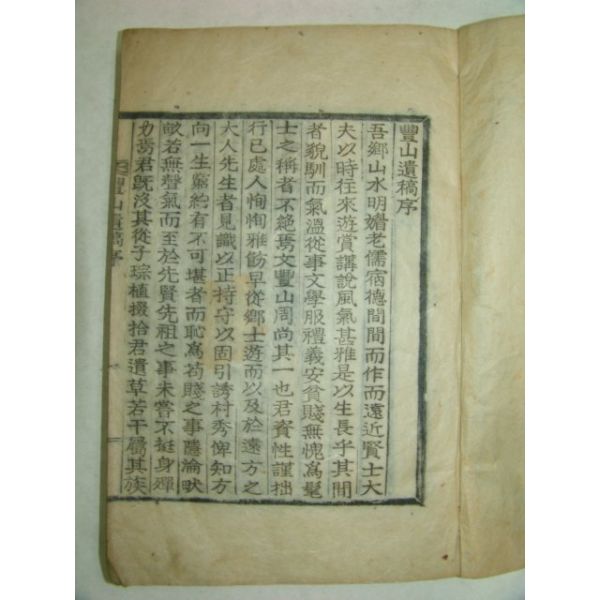 豐山遺稿序
吾鄉山水明嫷老儒宿德間間而作而遠近賢士大
夫以時往來遊賞講說風氣甚雅是以生長乎其間
者貌馴而氣溫從事文學服禮義安貧賤無愧爲髦
士之稱者不絶焉文豐山周尚其一也君資性謹拙
行己處人恂恂雅飭早從鄉士遊而以及於遠方之
大人先生者見識以正持守以固引誘村秀俾知方
向一生窮約有不可堪者而恥爲苟賤之事隱淪畎
畝若無聲氣而至於先賢先祖之事未嘗不挺身殫
力焉君旣沒其從子琮植掇拾君遺草若干屬其族
豐山遺稿序